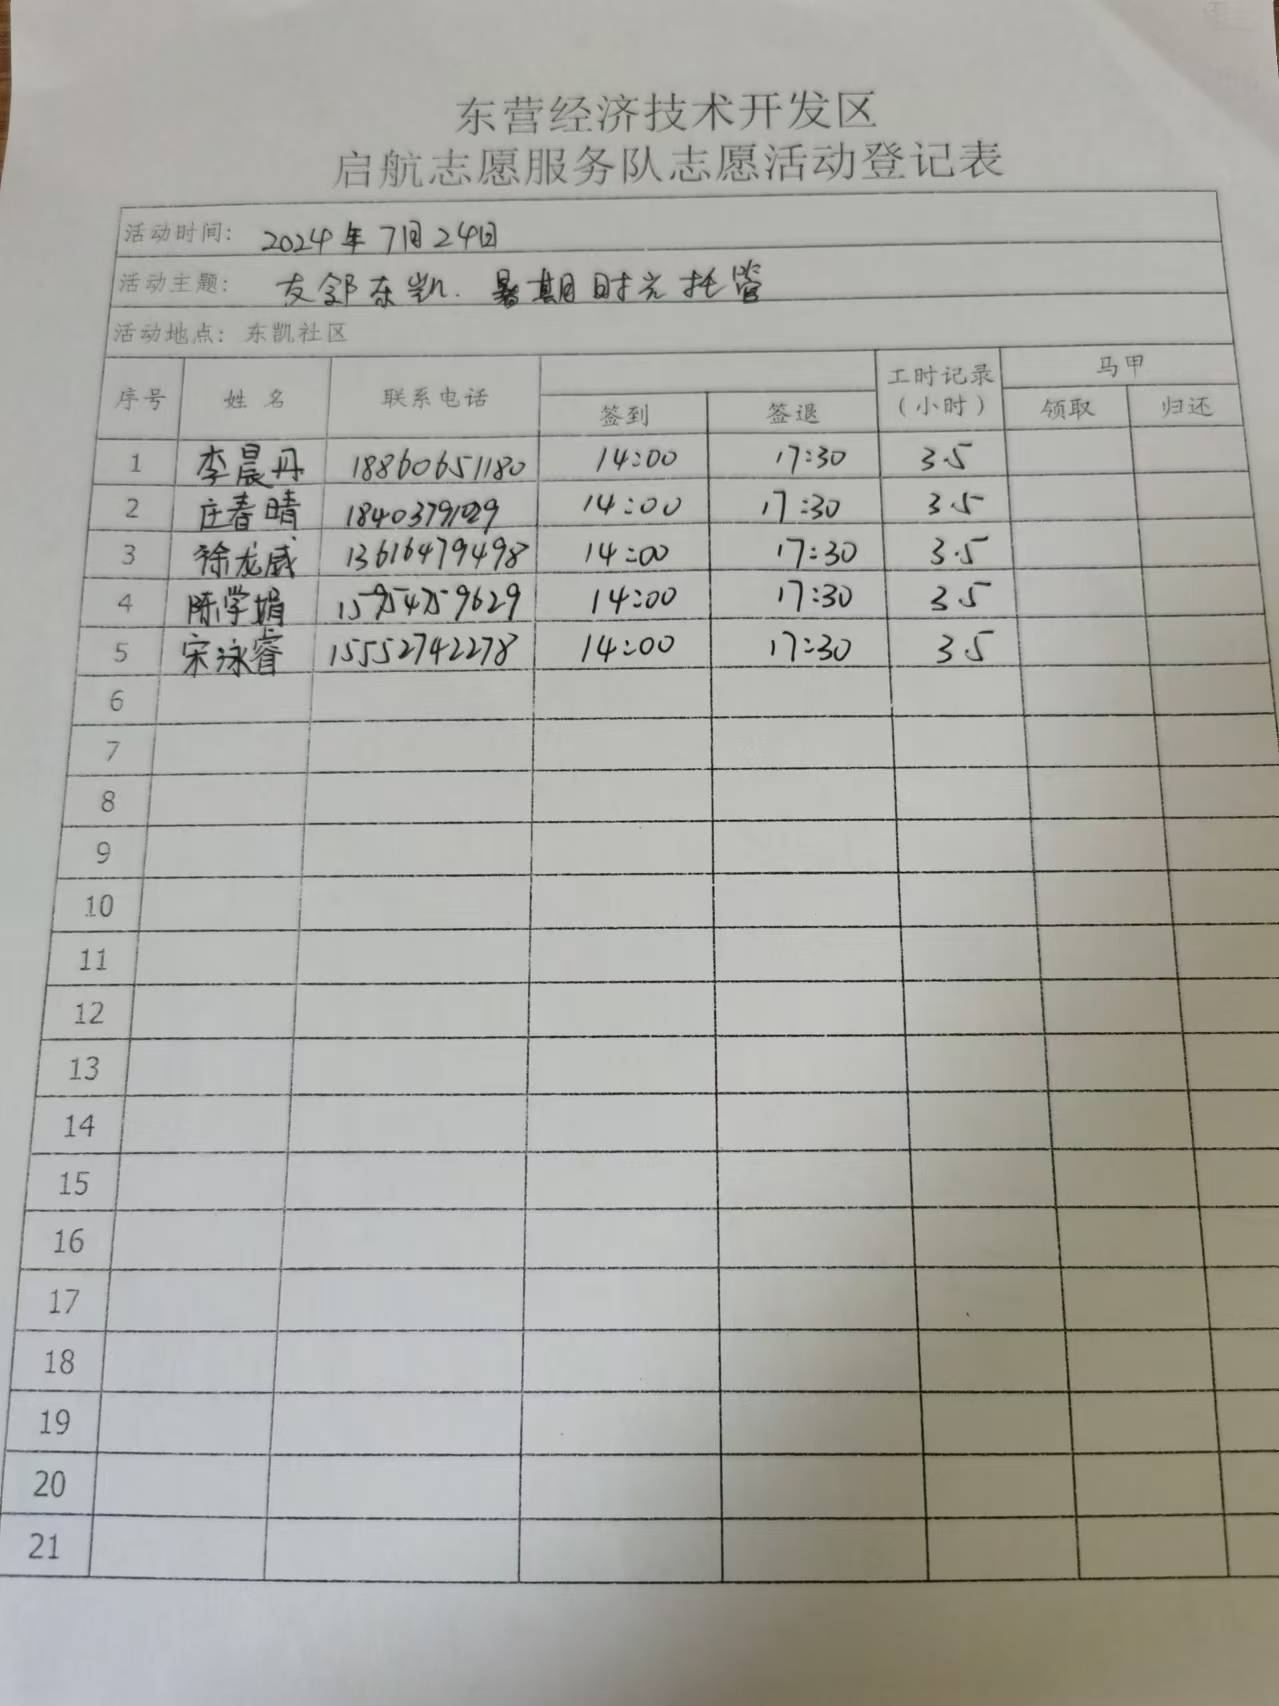 东营经济技术开发区
启航志愿服务队志愿活动登记表
活动时间: 2024年7月24日
活动主题: 友邻东凯.暑期时光托管
活动地点: 东凯社区
序号 姓名 联系电话 签到 签退 工时记录(小时) 马甲 领取 归还
1 李晨丹 18860651180 14:00 17:30 3.5
2 庄春晴 18403791029 14:00 17:30 3.5
3 徐龙威 13616479498 14:00 17:30 3.5
4 陈学娟 15954759629 14:00 17:30 3.5
5 宋泳睿 15552742278 14:00 17:30 3.5
6
7
8
9
10
11
12
13
14
15
16
17
18
19
20
21